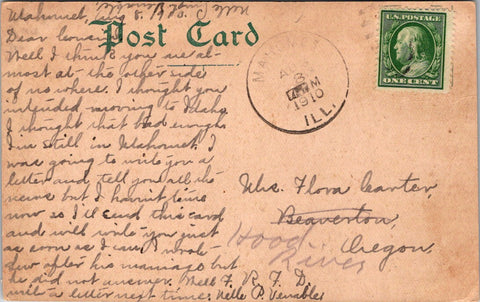 Mahomet, Aug 8, 1910.
Post Card
Dear Cousin,
Well I think you are al-
most at the other side
of no where. I thought you
intended moving to Idaho
I thought that bad enough.
I'm still in Mahomet. I
was going to write you a
letter and tell you all the
news but I haven't time
now so I'll send this card
and will write you just
as soon as I can. I wrote
few after his marriage but
he did not answer. Well
will a letter next time. Nelle P. Venable
MAHOMET
AUG
8
M
1910
ILL.
U.S. POSTAGE
ONE CENT
Mrs. Flora Carter,
Beaverton,
Hood River
Oregon.
R. F. D.